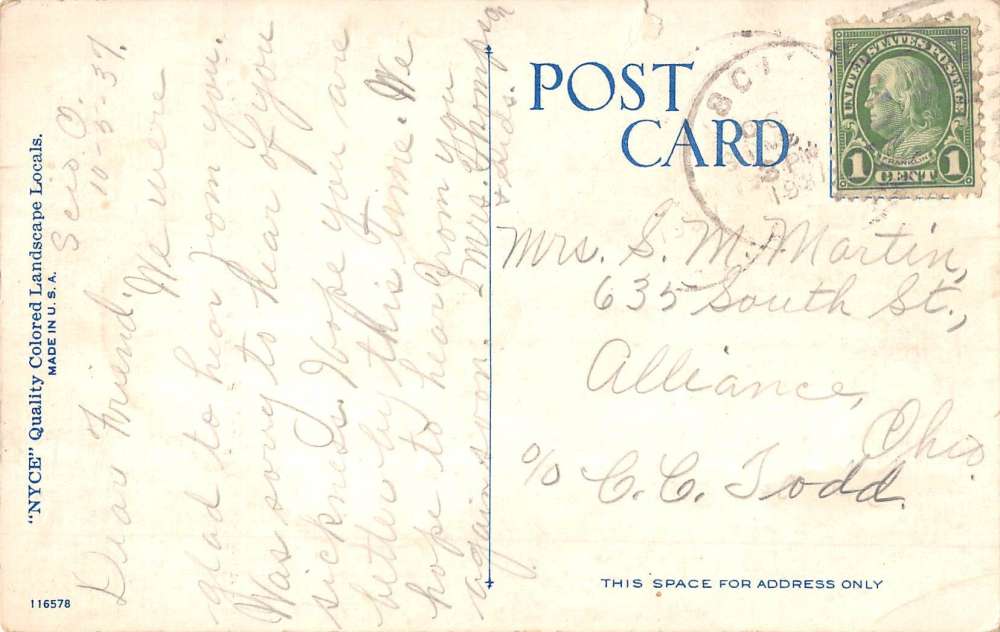 "NYCE" Quality Colored Landscape Locals.
MADE IN U. S. A.
116578
Scio. O.
10-5-37.
Dear Friend,
We were
glad to hear from you.
Was sorry to hear of you
sickness. Hope you are
better by this time. We
hope to hear from you
again soon. - Mrs. Thompson
& kids.
POST
CARD
SCI
PM
UNITED STATES POSTAGE
FRANKLIN
1 CENT 1
Mrs. S. M. Martin,
635 South St.,
Alliance,
Ohio
c/o C. C. Todd.
THIS SPACE FOR ADDRESS ONLY